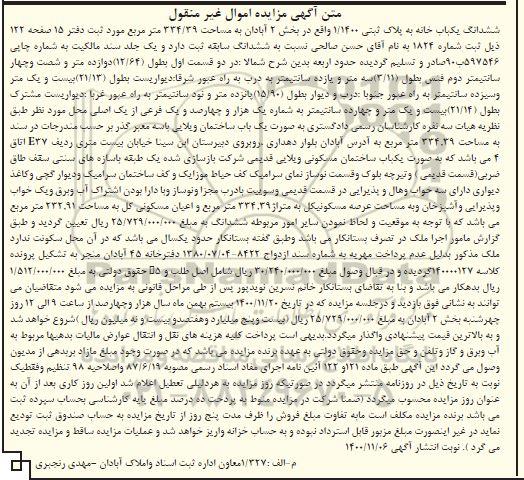 متن آگهی مزایده اموال غیر منقول
ششدانگ یکباب خانه به پلاک ثبتی ۱/۱۴۰۰ واقع در بخش ۲ آبادان به مساحت ۳۳۴/۳۹ متر مربع مورد ثبت دفتر ۱۵ صفحه ۱۲۲
ذیل ثبت شماره ۱۸۲۴ به نام آقای حسن صالحی نسبت به ششدانگ سابقه ثبت دارد و یک جلد سند مالکیت به شماره چاپی
۵۹۷۵۴۶ب۹۰صادر و تسلیم گردیده حدود اربعه بدین شرح شمالا :در دو قسمت اول بطول (۱۲/۶۴)دوازده متر و شصت وچهار
سانتیمتر دوم فنس بطول (۳/۱۱)سه متر و یازده سانتیمتر به درب به راه عبور شرقا:دیواریست بطول (۲۱/۱۳)بیست و یک متر
وسیزده سانتیمتر به راه عبور جنوبا :درب و دیوار بطول (۱۵/۹۰)پانزده متر و نود سانتیمتر به راه عبور غربا :دیواریست مشترک
بطول (۲۱/۱۴)بیست و یک متر و چهارده سانتیمتر به شماره یک هزار و چهارصد و یک فرعی از یک اصلی محل مورد نظر طبق
نظریه هیات سه نفره کارشناسان رسمی دادگستری به صورت یک باب ساختمان ویلایی باسه معبر گذر بر حسب مندرجات در سند
به مساحت ۳۳۴.۳۹ متر مربع به آدرس آبادان بلوار دهداری .روبروی دبیرستان ابن سینا خیابان بیست متری ردیف E۳۷ اتاق
۴ می باشد که به صورت یکباب ساختمان مسکونی ویلایی قدیمی شرکت بازسازی شده یک طبقه باسازه های سنتی سقف طاق
ضربی(قسمت قدیمی ) وتیرچه بلوک وقسمت نوساز نمای سرامیک کف حیاط موزایک و کف ساختمان سرامیک ودیوار گچی وکاغذ
دیواری دارای سه خواب وهال و پذیرایی در قسمت قدیمی وسوییت بادرب مجزا ونوساز وبا دارا بودن اشتراک آب وبرق ویک خواب
وپذیرایی وآشپزخان وبه مساحت عرصه مسکونیکل به متراژ ۳۳۴.۳۹ متر مربع و اعیان مسکونی کل به مساحت ۲۳۲.۹۱ متر مربع
می باشد که با توجه به موقعیت و لحاظ نمودن سایر امور مربوطه ششدانگ به مبلغ ۲۵/۷۲۹/۰۰۰/۰۰۰ ریال تعیین گردید و طبق
گزارش مامور اجرا ملک در تصرف بستانکار می باشد وطبق گفته بستانکار حدود یکسال می باشد که در آن محل سکونت ندارد
ملک مذکور بدلیل عدم پرداخت مهریه به شماره سند ازدواج ۸۴۲۲-۱۳۸۰/۰۷/۰۴ دفترخانه ۴۵ آبادان منجر به تشکیل پرونده
کلاسه ۱۴۰۰۰۰۱۲۷گردیده و در قبال وصول مبلغ ۳۰/۲۴۰/۰۰۰/۰۰۰ ریال شامل اصل طلب و ۵٪ حقوق دولتی به مبلغ ۱/۵۱۲/۰۰۰/۰۰۰
ریال بدهکار می باشد و بنا به تقاضای بستانکار خانم نسرین نویدپور پس از طی مراحل قانونی به مزایده می شود متقاضیان می
توانند به نشانی فوق بازدید و درجلسه مزایده که در تاریخ ۱۴۰۰/۱۱/۲۰ بیستم بهمن ماه سال هزار وچهارصد از ساعت ۹ الی ۱۲ روز
چهرشنبه بخش ۲ آبادان به مبلغ ۲۵/۷۲۹/۰۰۰/۰۰۰ ریال (بیست وپنج میلیارد وهفتصدو بیست و نه میلیون ریال )شروع خواهد شد
و به بالاترین قیمت پیشنهادی واگذار میگردد.بدیهی است پرداخت کلیه هزینه های نقل و انتقال عوارض مالیات بدهیها مربوط به
آب وبرق و گاز وتلفن و حق مزایده وحقوق دولتی به عهده برنده مزایده می باشد که در صورت وجود مبلغ مازاد بربدهی از مدیون
وصول می گردد این آگهی طبق ماده ۱۲۱و ۱۲۲ آئین نامه اجرای مفاد اسناد رسمی مصوبه ۸۷/۶/۱۹ واصلاحیه ۹۸ تنظیم وفقطیک
نوبت به تاریخ ذیل در روزنامه منتشر میگردد در صورتیکه روز مزایده به هردلیلی تعطیل اعلام شد اولین روز کاری بعد از آن به
عنوان روز مزایده محسوب میگردد (ضمنا شرکت در مزایده منوط به پرداخت ده درصد مبلغ پایه کارشناسی بحساب سپرده ثبت
می باشد برنده مزایده مکلف است مابه تفاوت مبلغ فروش را ظرف مدت پنج روز از تاریخ مزایده به حساب صندوق ثبت تودیع
نماید در غیر اینصورت مبلغ مزبور قابل استرداد نبوده و به حساب خزانه واریز خواهد شد و عملیات مزایده ساقط و مزایده تجدید
می گرد ). نوبت انتشار آگهی ۱۴۰۰/۱۱/۰۶
م-الف :۱/۳۲۷معاون اداره ثبت اسناد واملاک آبادان –مهدی رنجبری